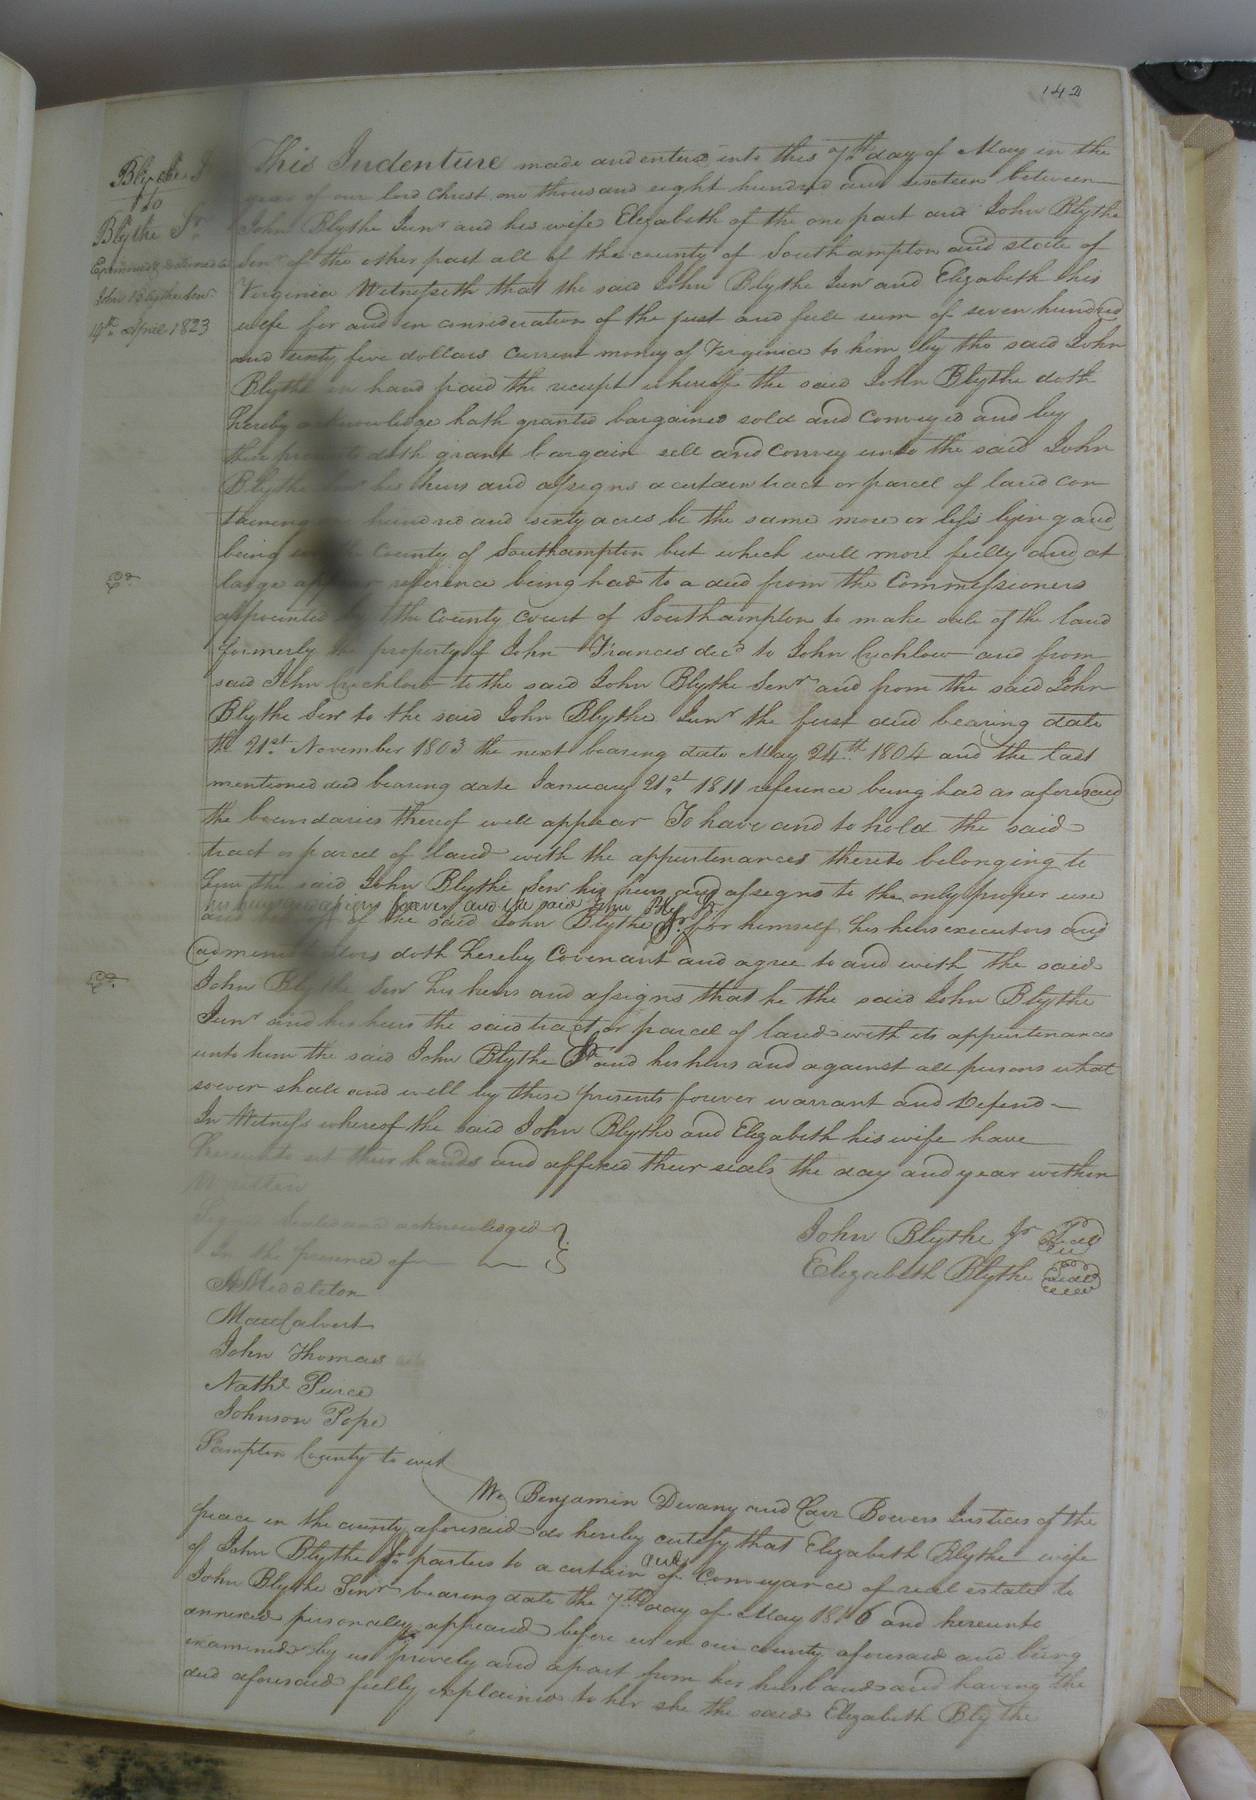 142
Blythe J
to
Blythe Sr.
Examined & delivered to
John Blythe Senr.
19th April 1823
This Indenture made and enterd into this 7th day of May in the
year of our lord Christ one thousand eight hundred and sixteen between
John Blythe Junr and his wife Elizabeth of the one part and John Blythe
Senr of the other part all of the county of Southampton and state of
Virginia Witnesseth that the said John Blythe Jun and Elizabeth his
wife for and in consideration of the just and full sum of seven hundred
and sixty five dollars current money of Virginia to him by the said John
Blythe in hand paid the receipt whereof the said John Blythe doth
hereby acknowledge hath granted bargained sold and conveyed and by
these presents doth grant bargain sell and convey unto the said John
Blythe Senr his heirs and assigns a certain tract or parcel of land con
taining hundred and sixty acres be the same more or less lying and
being in the County of Southampton but which will more fully and at
large appear reference being had to a deed from the Commissioners
appointed by the County Court of Southampton to make sale of the land
formerly the property of John Frances decd to John Crichlow and from
said John Crichlow to the said John Blythe Senr and from the said John
Blythe Senr to the said John Blythe Junr the first deed bearing date
the 21st November 1803 the next bearing date May 24th 1804 and the last
mentioned deed bearing date January 21st 1811 reference being had as aforesaid
the boundaries thereof will appear To have and to hold the said
tract or parcel of land with the appurtenances thereto belonging to
him the said John Blythe Senr his heirs and assigns to the only proper use
his heirs and assigns forever and the said John Blythe Jr
and of the said John Blythe Sr. for himself his heirs executors and
administrators doth hereby Covenant and agree to and with the said
John Blythe Senr his heirs and assigns that he the said John Blythe
Junr and his heirs the said tract or parcel of land with its appurtenances
unto him the said John Blythe Sr and his heirs and against all persons what
soever shall and will by these presents forever warrant and Defend
In Witness whereof the said John Blythe and Elizabeth his wife have
hereunto set their hands and affixed their seals the day and year within
written
Signed Sealed and acknowledged
In the presence of
John Blythe Jr Seal
Elizabeth Blythe Seal
A Middleton
Max Calvert
John Thomas
Nathl Peirce
Johnson Pope
Sampton County to wit
We Benjamin Devany and Carr Bowers Justices of the
peace in the county aforesaid do hereby certify that Elizabeth Blythe wife
of John Blythe Jr parties to a certain deed of Conveyance of real estate to
John Blythe Senr bearing date the 7th day of May 1816 and hereunto
annexed personally appeared before us in our county aforesaid and being
examined by us privily and apart from her husband and having the
deed aforesaid fully explained to her she the said Elizabeth Blythe